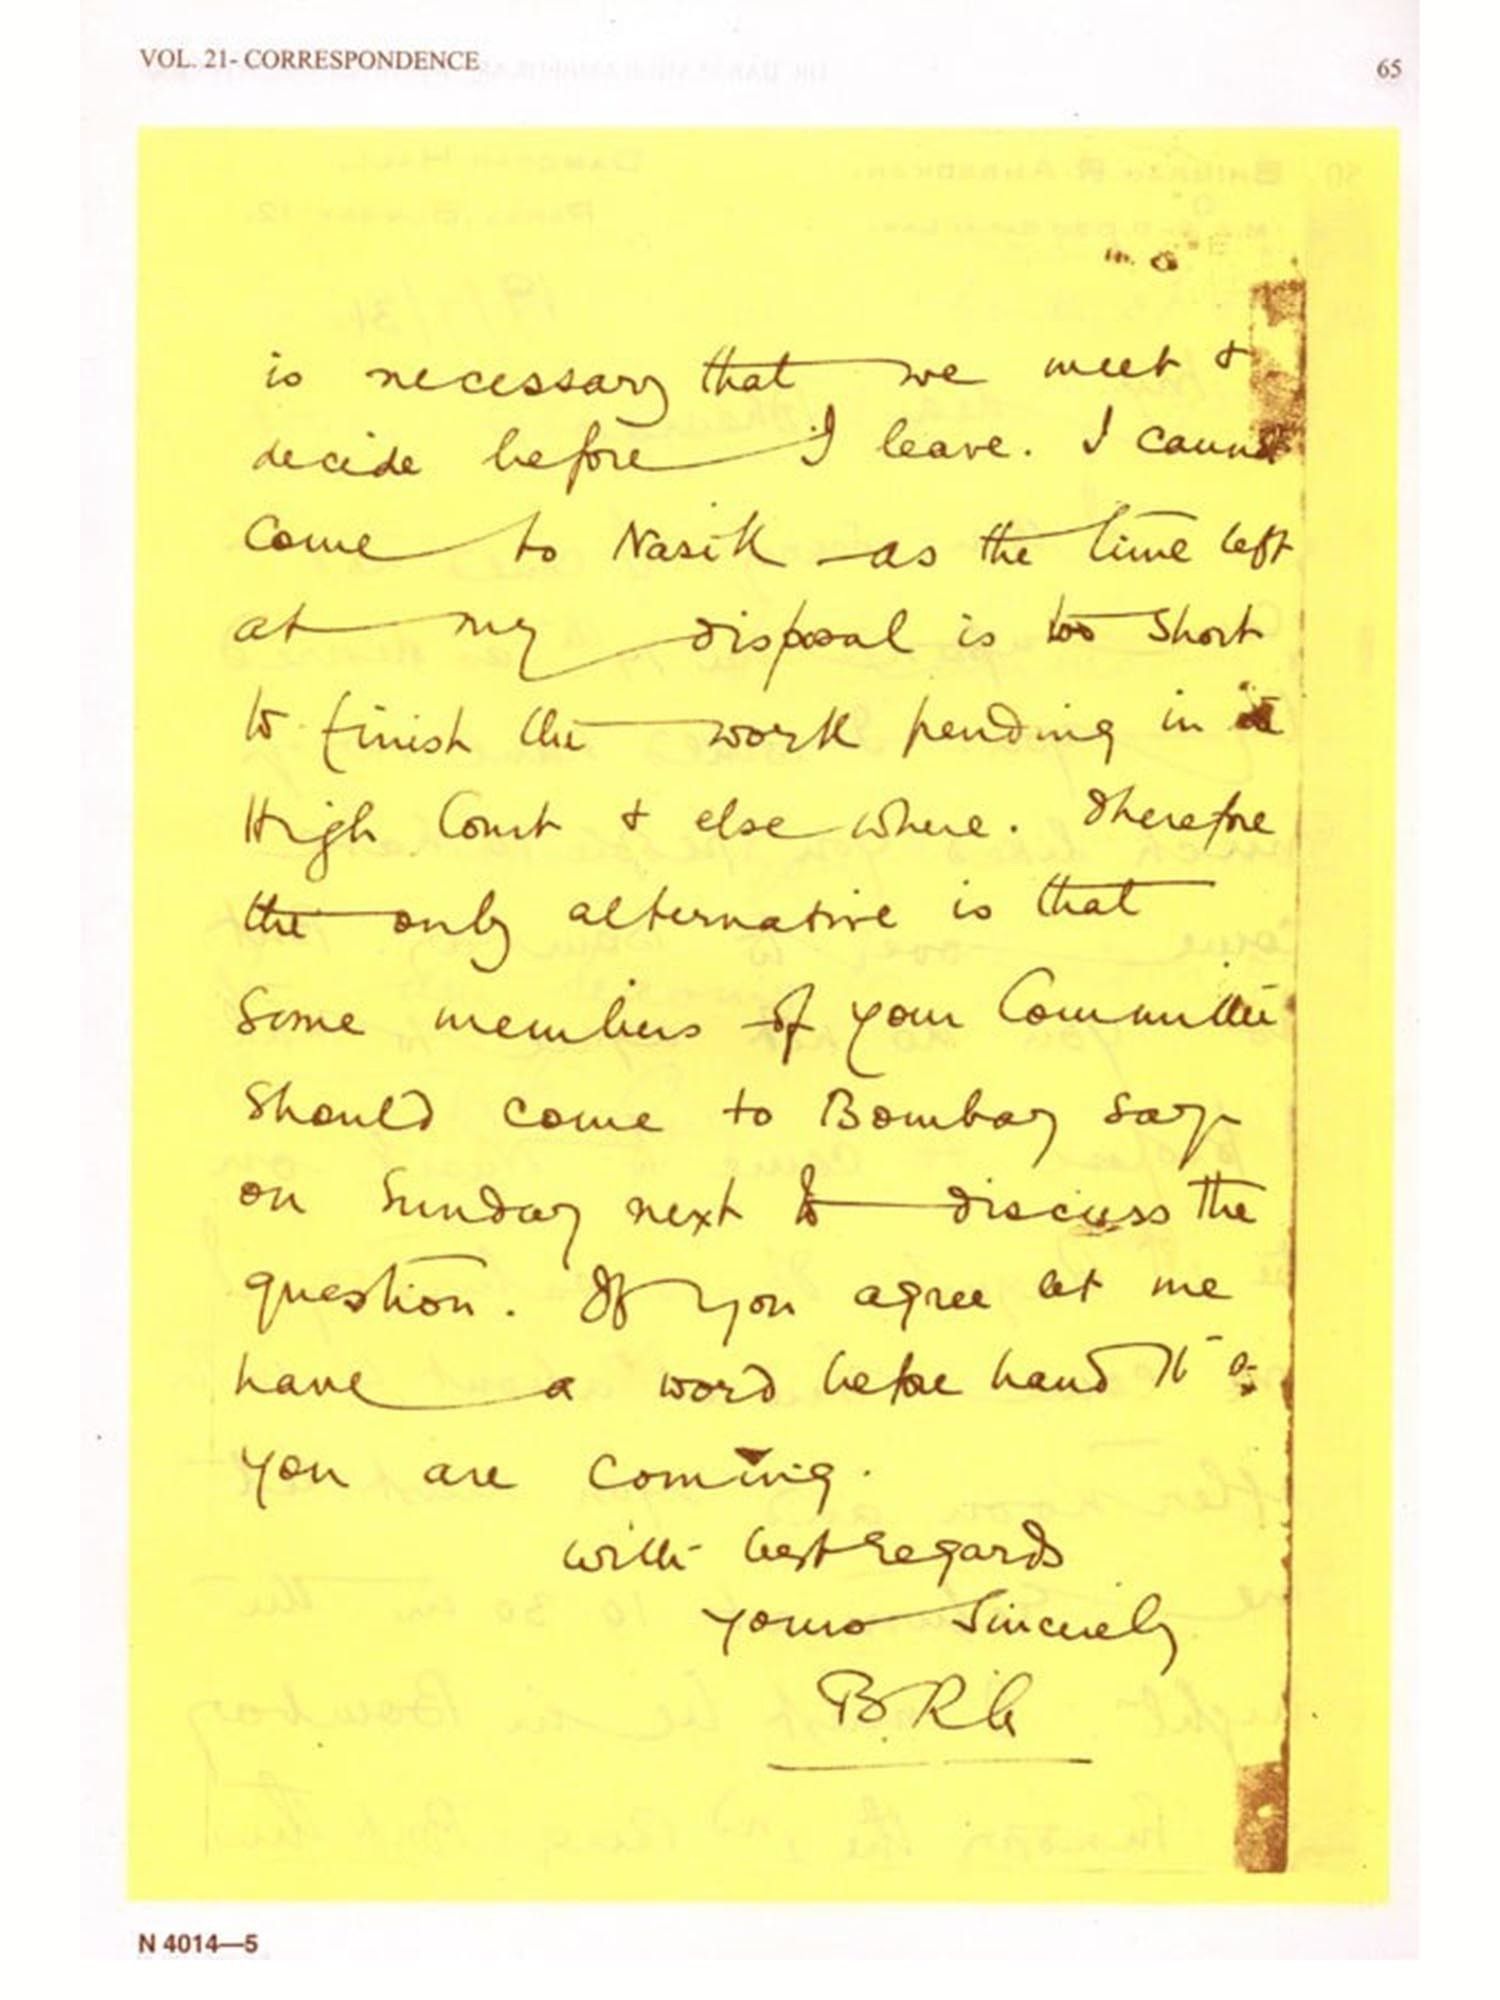 VOL. 21- CORRESPONDENCE
65
is necessary that we meet &
decide before I leave. I cannot
come to Nasik as the time left
at my disposal is too short
to finish the work pending in the
High Court & else where. Therefore
the only alternative is that
some members of your Committee
should come to Bombay say
on Sunday next to discuss the
question. If you agree let me
have a word before hand
you are coming.
with best regards
yours Sincerely
BRA
N 4014—5